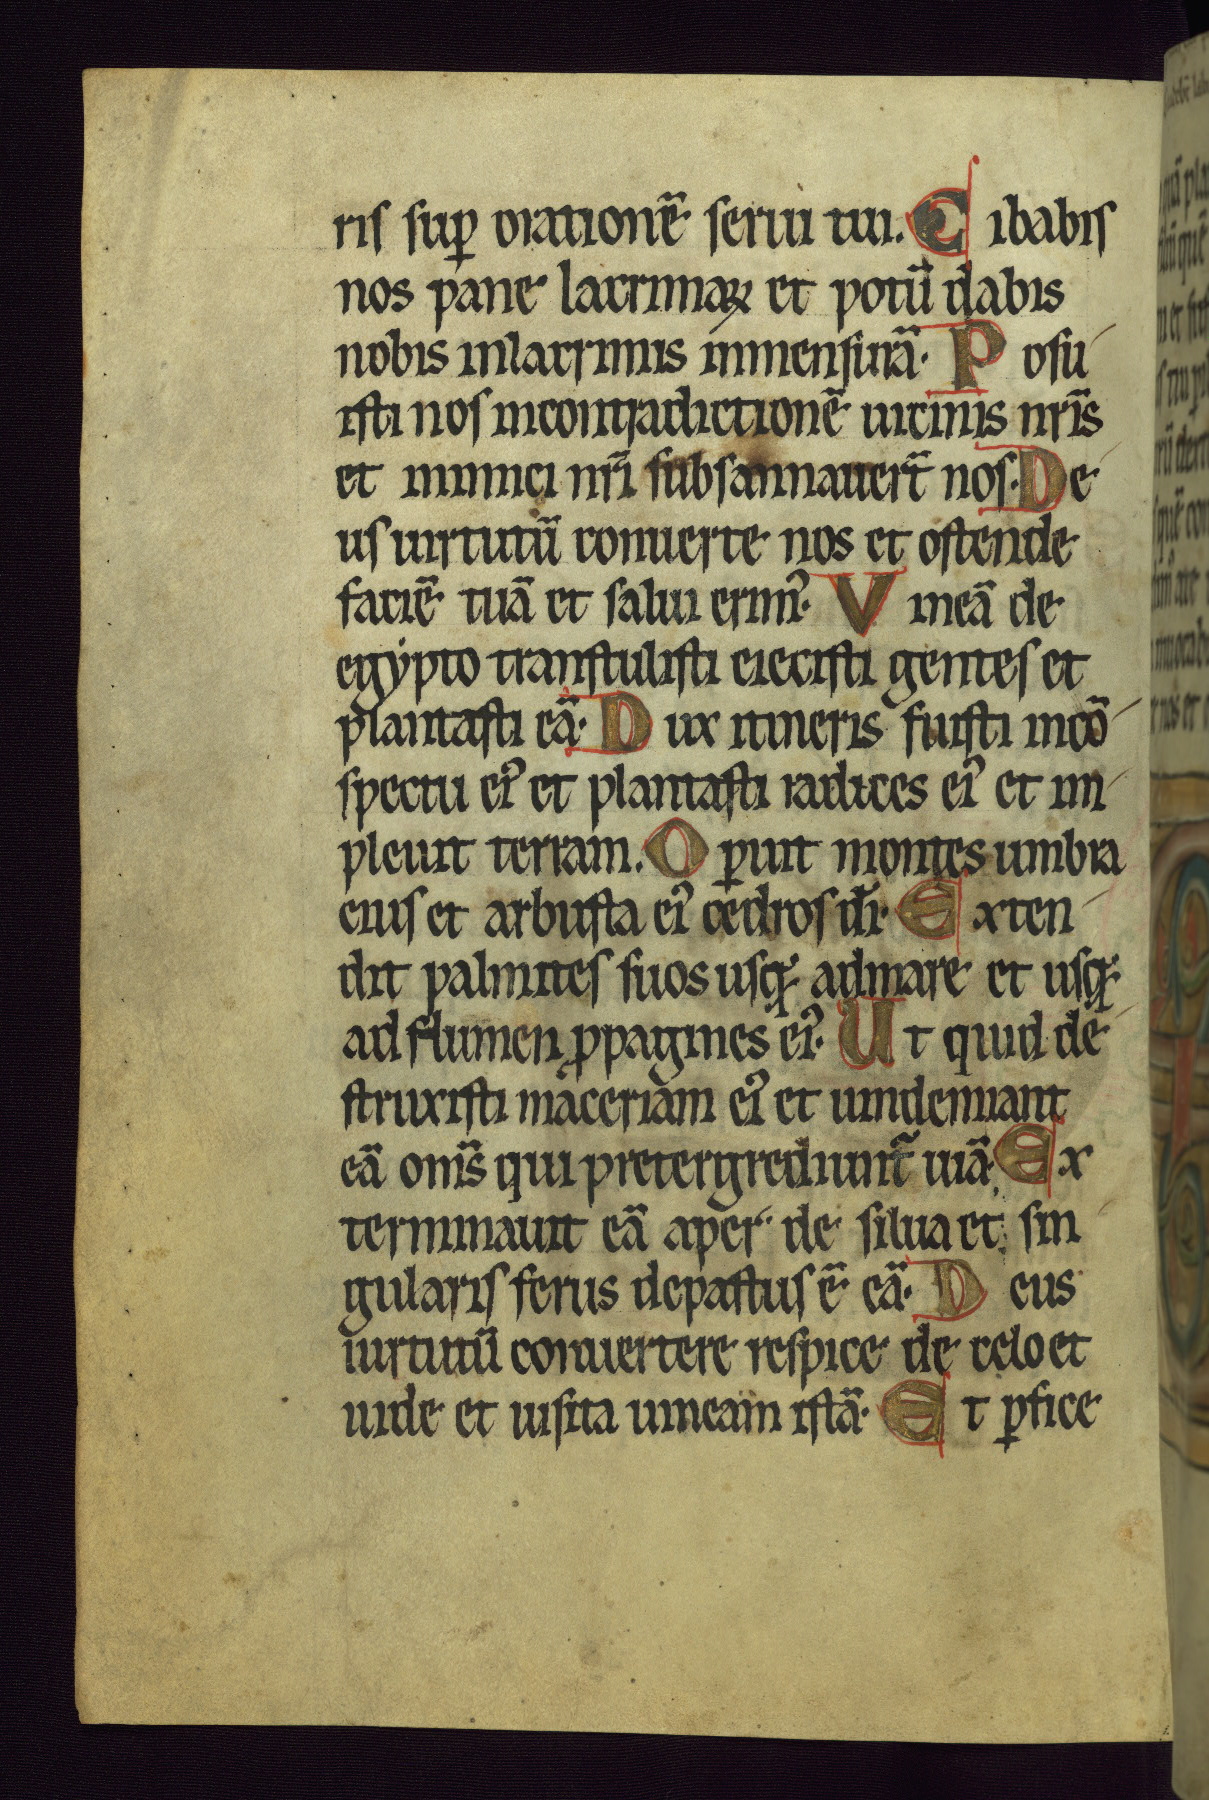 ris sup̱ orationē serui tui. Cibabis
nos pane lacrimaꝝ et potū dabis
nobis inlacrimis inmensurā. Posu
isti nos incontradictionē uicinis nr̄is
et inimici nr̄i subsannauer̄t nos. De
us uirtutū conuerte nos et ostende
faciē tuā et salui erimꝰ. Vineā de
egẏpto transtulisti eiecisti gentes et
plantasti eā. Dux itineris fuisti incō
spectu eiꝰ et plantasti radices eiꝰ et im
pleuit terram. Oꝑuit montes umbra
eius et arbusta eiꝰ cedros dī. Exten
dit palmites suos usqꝫ admare et usqꝫ
ad flumen ꝓpagines eiꝰ. Ut quid de
struxisti maceriam eiꝰ et uindemiant
eā om̄s qui pretergrediunt᷑ uiā. Ex
terminauit eā aper de silua et sin
gularis ferus depastus ē eā. Deus
uirtutū conuertere respice de celo et
uide et uisita uineam istā. Et ꝑfice